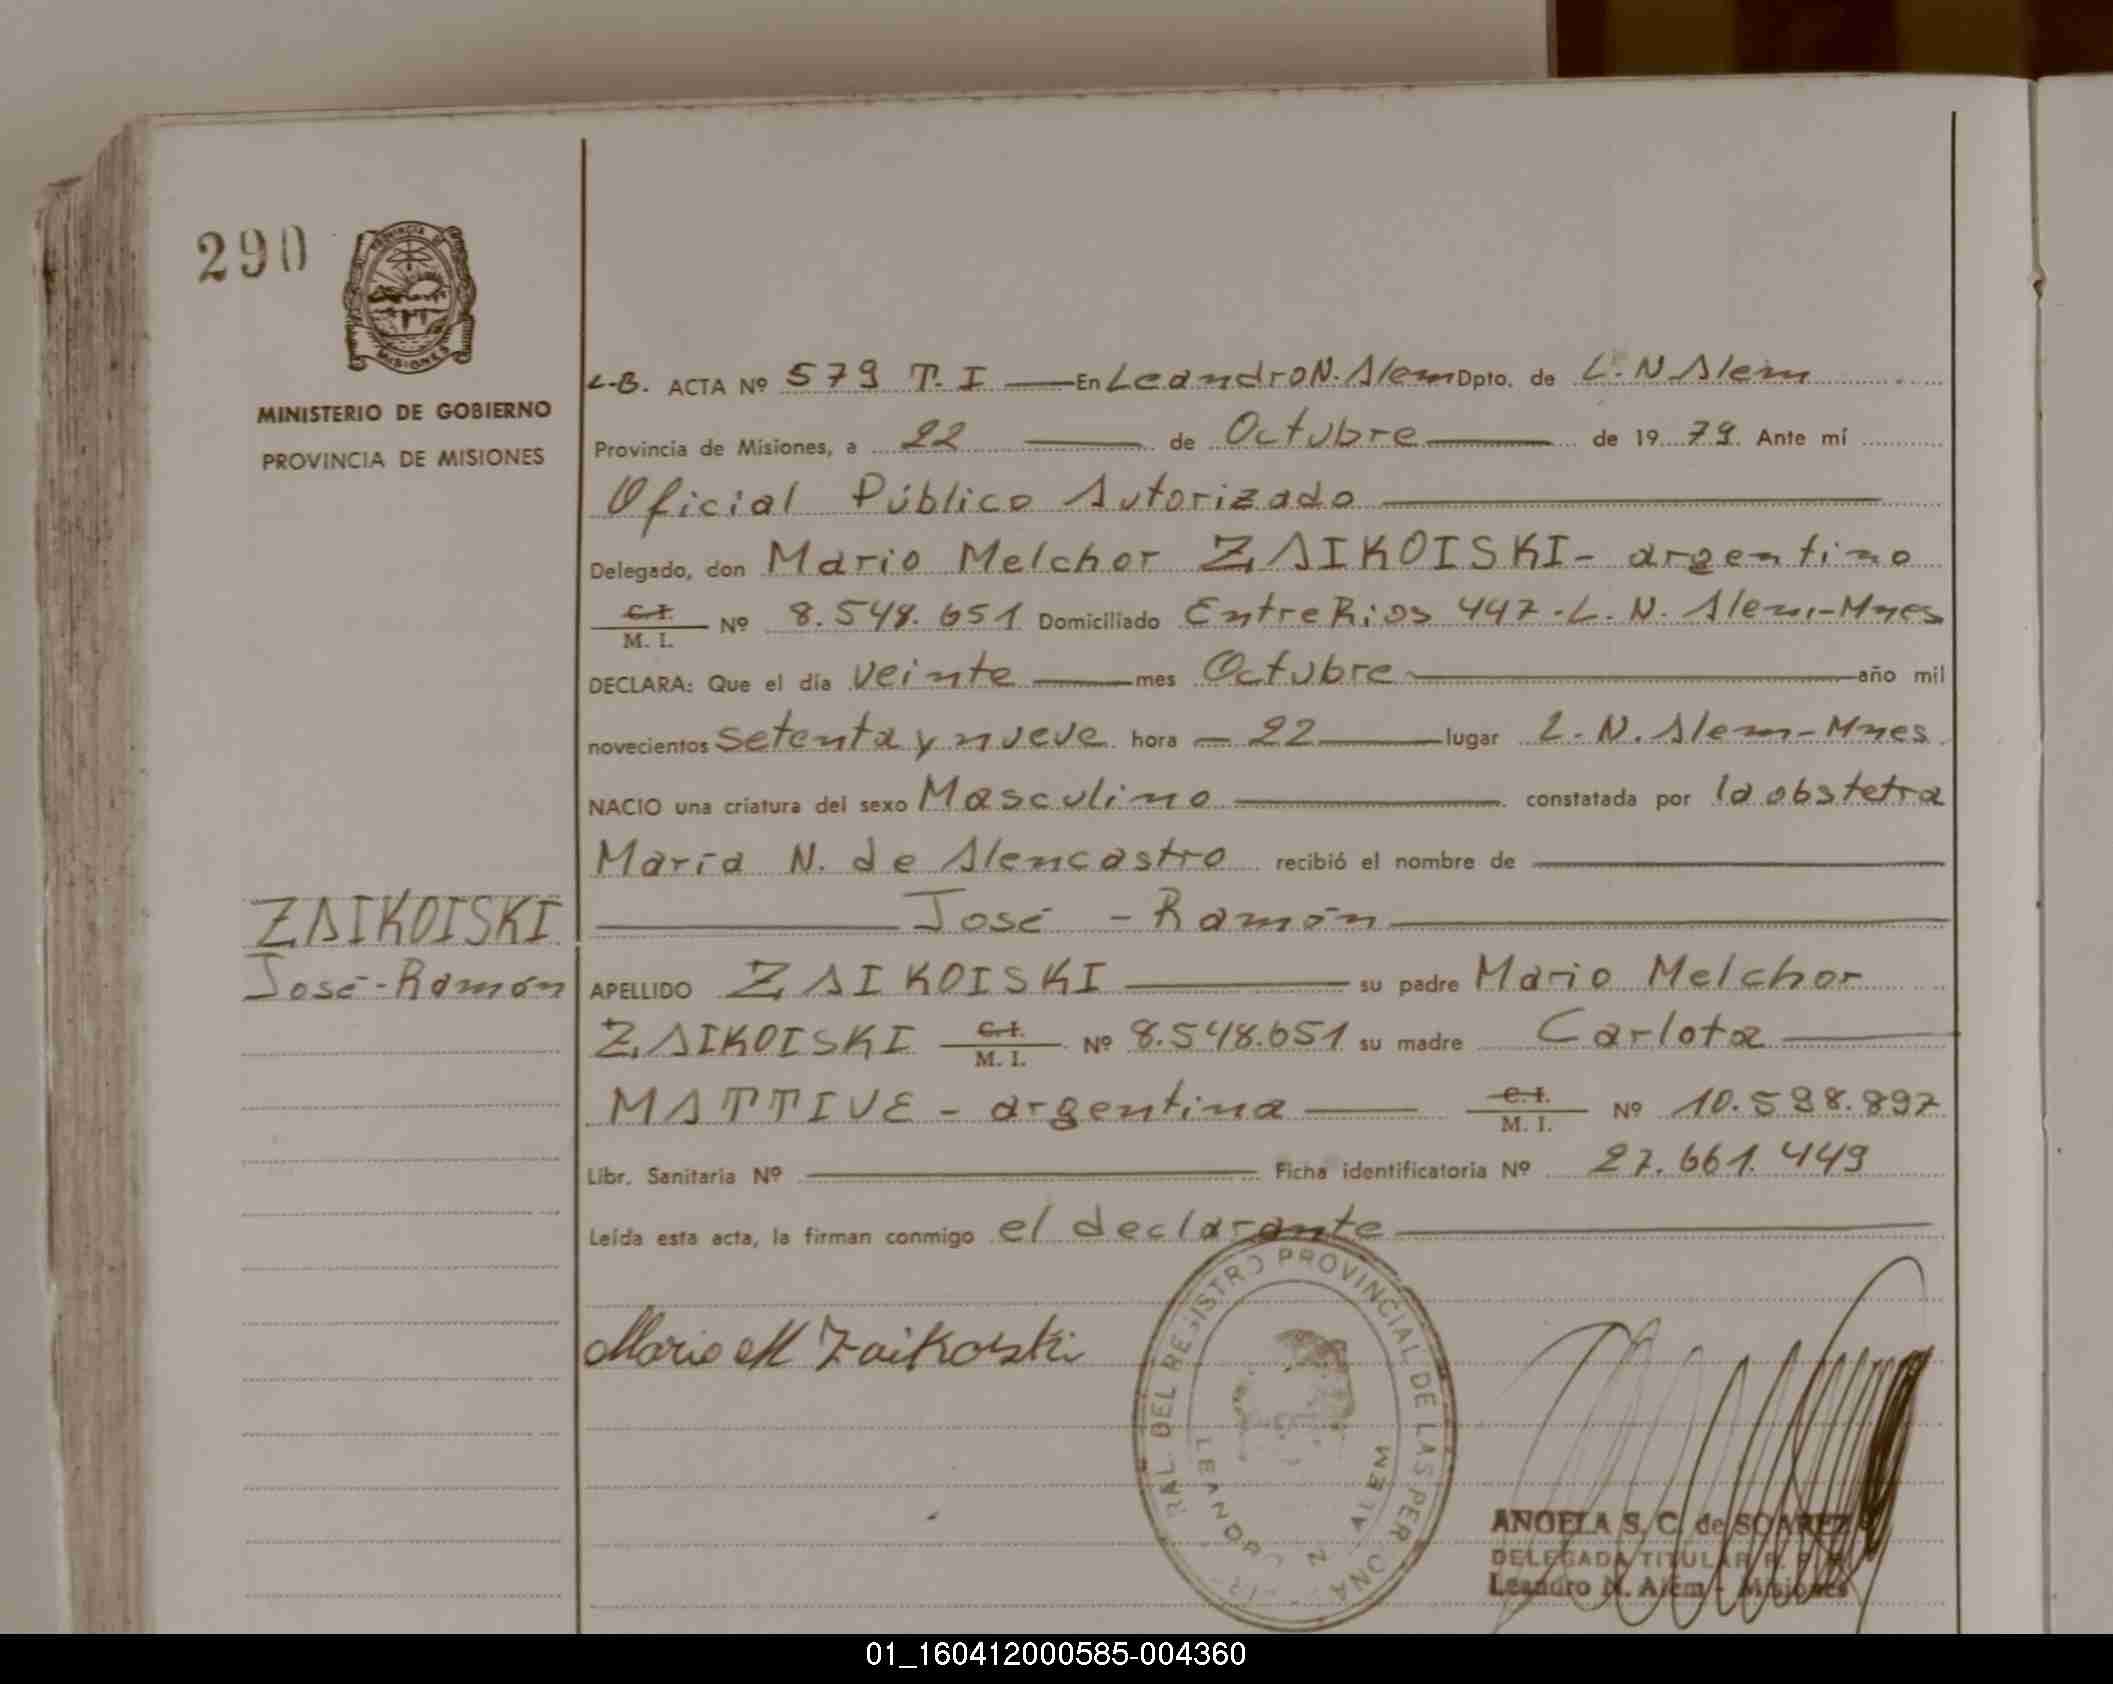 290
PROVINCIA DE
MISIONES
MINISTERIO DE GOBIERNO
PROVINCIA DE MISIONES
ZAIKOISKI
José-Ramón
L-B. ACTA Nº 579 T. I — En Leandro N. Alem Dpto. de L. N Alem
Provincia de Misiones, a 22 — de Octubre — de 19 79. Ante mí
Oficial Público Autorizado —
Delegado, don Mario Melchor ZAIKOISKI- argentino
C.I. / M. I. Nº 8.548.651 Domiciliado Entre Rios 447-L. N. Alem-Mnes
DECLARA: Que el día veinte — mes Octubre — año mil
novecientos setenta y nueve hora — 22 — lugar L-N. Alem-Mnes
NACIO una criatura del sexo Masculino — constatada por la obstetra
María N. de Alencastro recibió el nombre de —
— José - Ramón —
APELLIDO ZAIKOISKI — su padre Mario Melchor
ZAIKOISKI C.I. / M. I. Nº 8.548.651 su madre Carlota —
MATTIVE - argentina — C.I. / M. I. Nº 10.598.897
Libr. Sanitaria Nº — Ficha identificatoria Nº 27.661.449
Leída esta acta, la firman conmigo el declarante —
Mario M Zaikoiski
RAL DEL REGISTRO PROVINCIAL DE LAS PERSONA
LEANDRO N ALEM
ANGELA S. C. de SOAREZ
DELEGADA TITULAR R. P. P.
Leandro N. Alem - Misiones
01_160412000585-004360